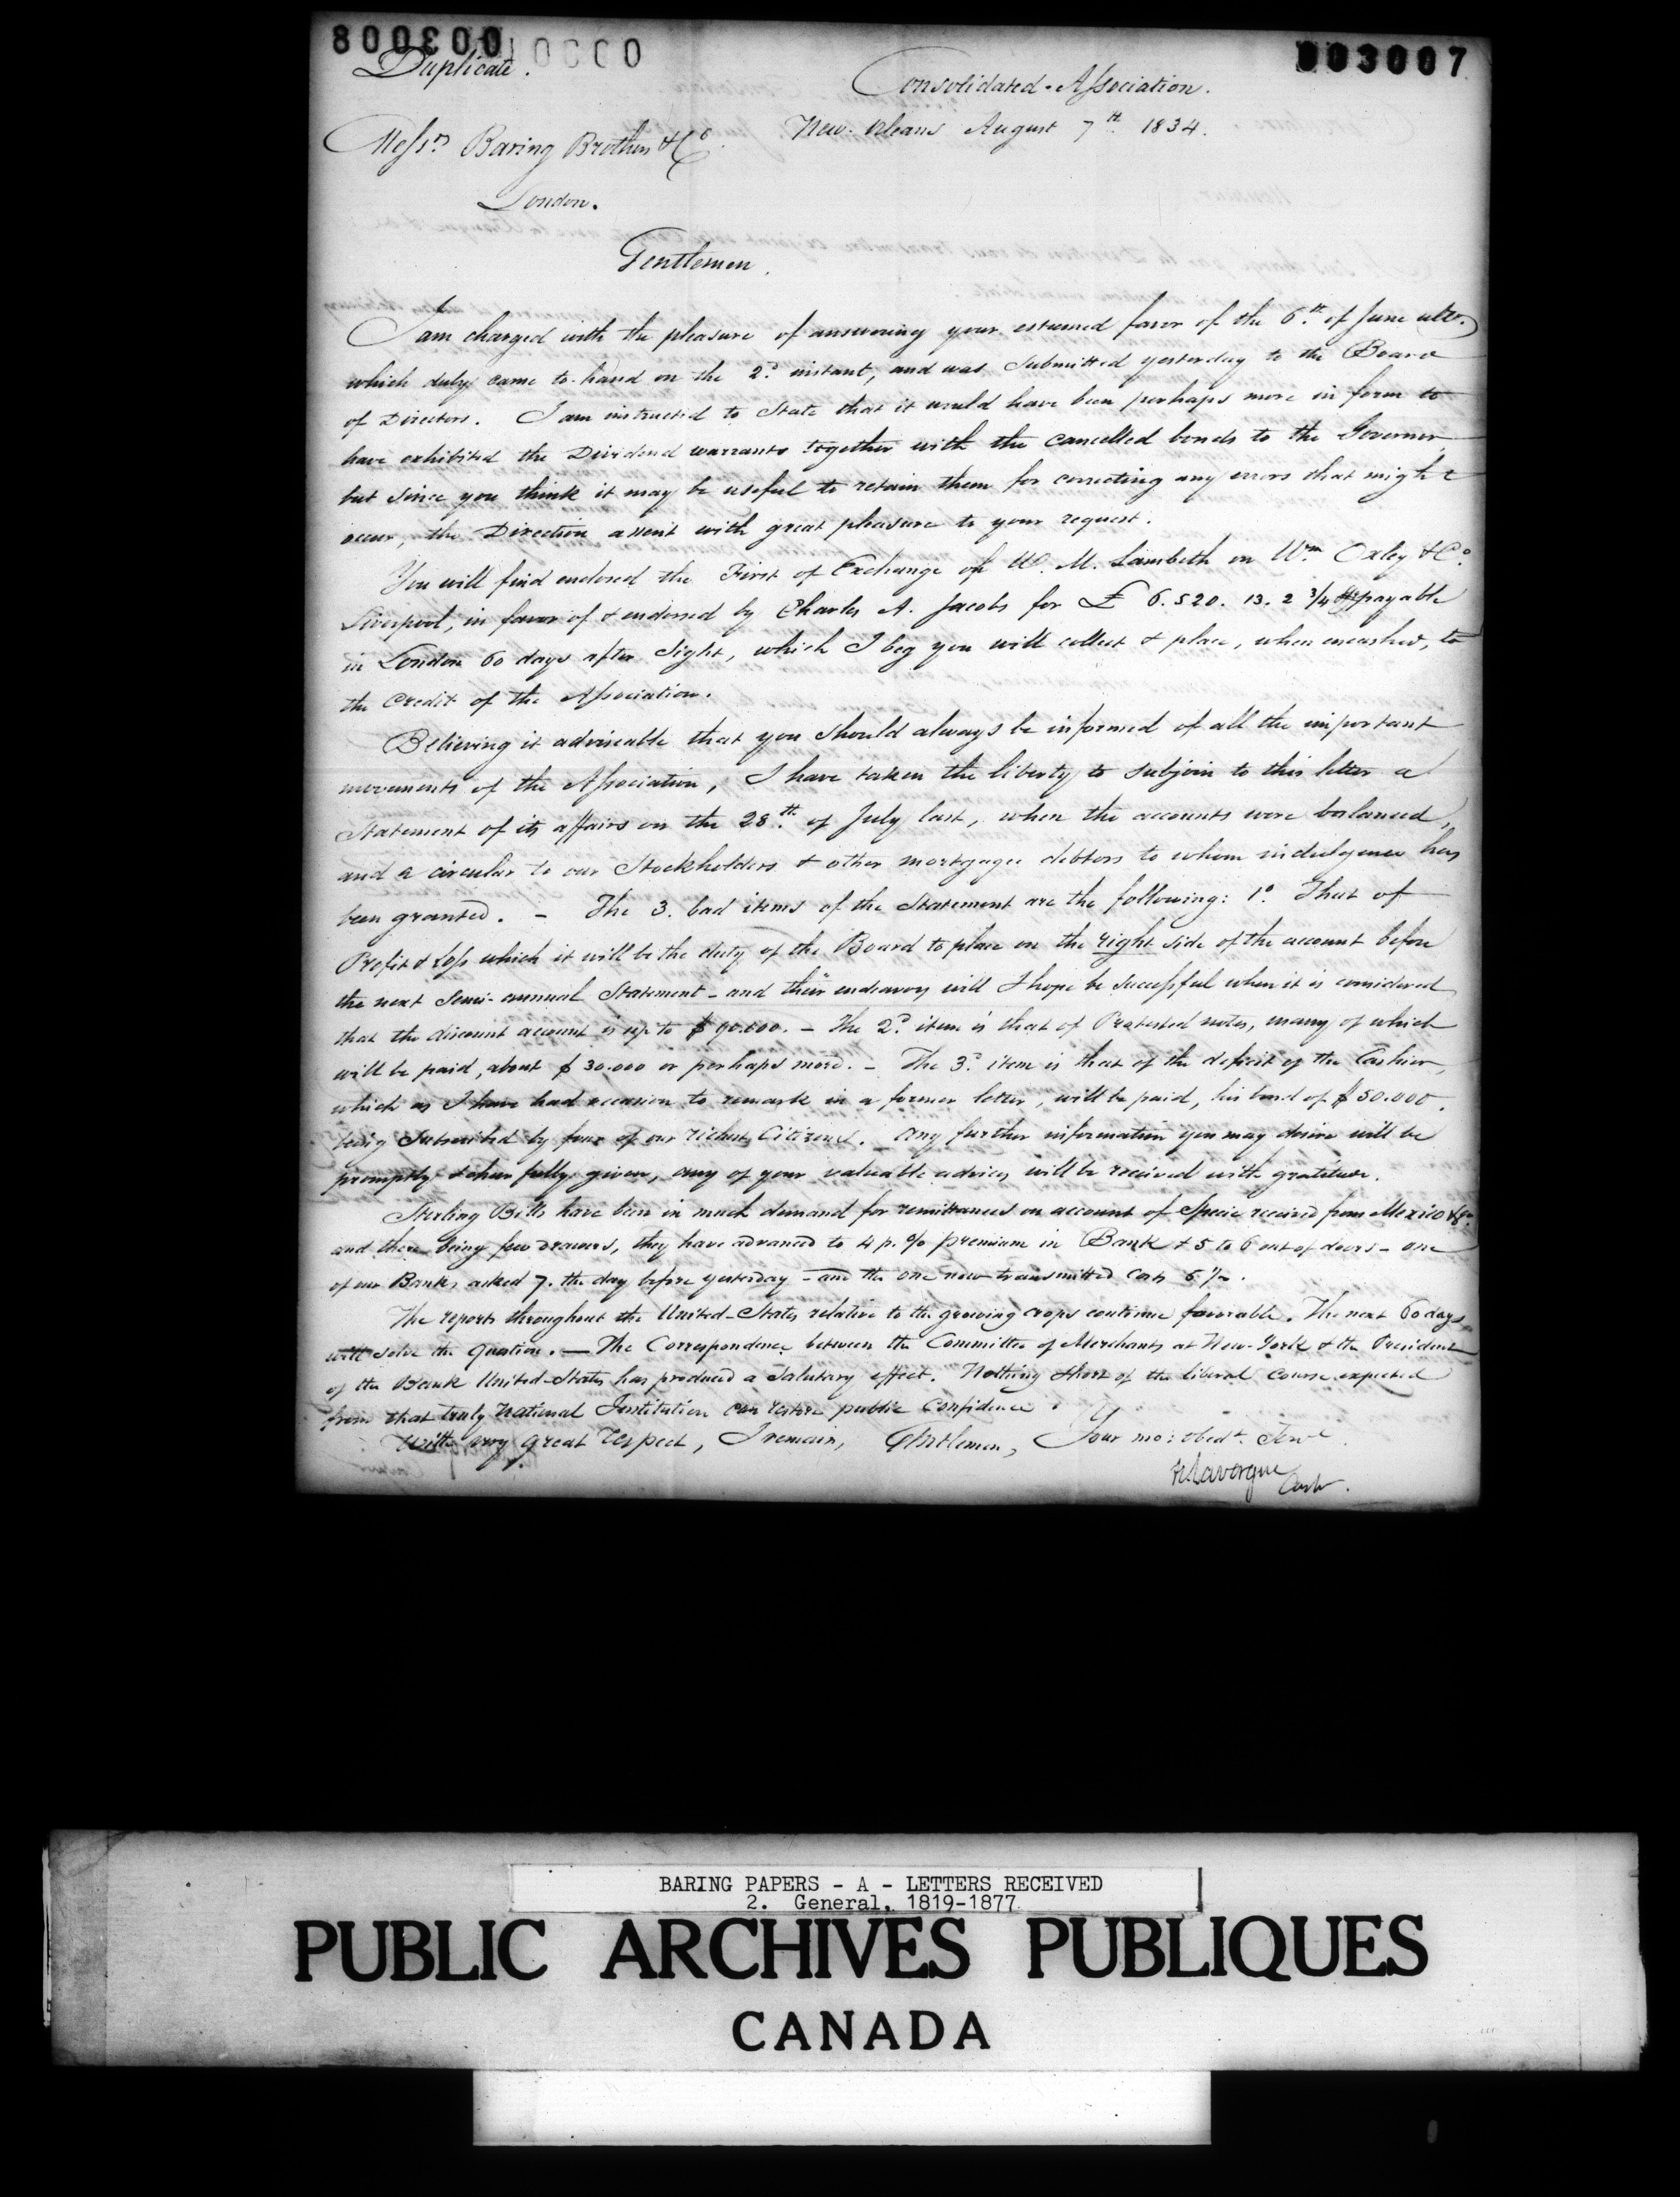 003007
Duplicate.
Consolidated-Association.
New-Orleans August 7th 1834.
Messrs Baring Brothers & Co.
London.
Gentlemen,
I am charged with the pleasure of answering your esteemed favor of the 6th of June ulto.
which duly came to hand on the 2d instant, and was Submitted yesterday to the Board
of Directors. I am instructed to State that it would have been perhaps more in form to
have exhibited the Dividend warrants together with the cancelled bonds to the Governor,
but since you think it may be useful to retain them for correcting any errors that might
occur, the Direction assent with great pleasure to your request.
You will find enclosed the First of Exchange of W. M. Lambeth on Wm Oxley & Co.
Liverpool, in favor of & endorsed by Charles A. Jacobs for £ 6.520. 13. 2 3/4 payable
in London 60 days after Sight, which I beg you will collect & place, when encashed, to
the Credit of the Association.
Believing it adviseable that you should always be informed of all the important
movements of the Association, I have taken the liberty to subjoin to this letter a
Statement of its affairs on the 28th of July last, when the accounts were balanced,
and a circular to our Stockholders & other mortgagee debtors to whom indulgence has
been granted. - The 3. bad items of the Statement are the following: 1o. That of
Profit & Loss which it will be the duty of the Board to place on the right side of the account before
the next Semi-annual Statement - and their endeavors will I hope be successful when it is considered
that the discount account is up to $ 90.000. - The 2d. item is that of Protested notes, many of which
will be paid, about $ 30.000 or perhaps more. - The 3d. item is that of the deficit of the Cashier,
which as I have had occasion to remark in a former letter, will be paid, his bond of $ 50.000.
being Subscribed by four of our richest Citizens. - Any further information you may desire will be
promptly & cheerfully given, any of your valuable advices will be received with gratitude.
Sterling Bills have been in much demand for remittances on account of Specie received from Mexico &ca.
and there being few drawers, they have advanced to 4 p. % premium in Bank & 5 to 6 out of doors - one
of our Banks asked 7. the day before yesterday - and the one now transmitted costs 6 %.
The reports throughout the United-States relative to the growing crops continue favorable. The next 60 days
will solve the Question. - The Correspondence between the Committee of Merchants at New-York & the President
of the Bank United-States has produced a Salutary effect. Nothing short of the liberal Course expected
from that truly National Institution can restore public Confidence.
With very great respect, I remain, Gentlemen, Your mo: obedt. Servt.
H Lavergne
Cashr.
BARING PAPERS - A - LETTERS RECEIVED
2. General, 1819-1877
PUBLIC ARCHIVES PUBLIQUES
CANADA